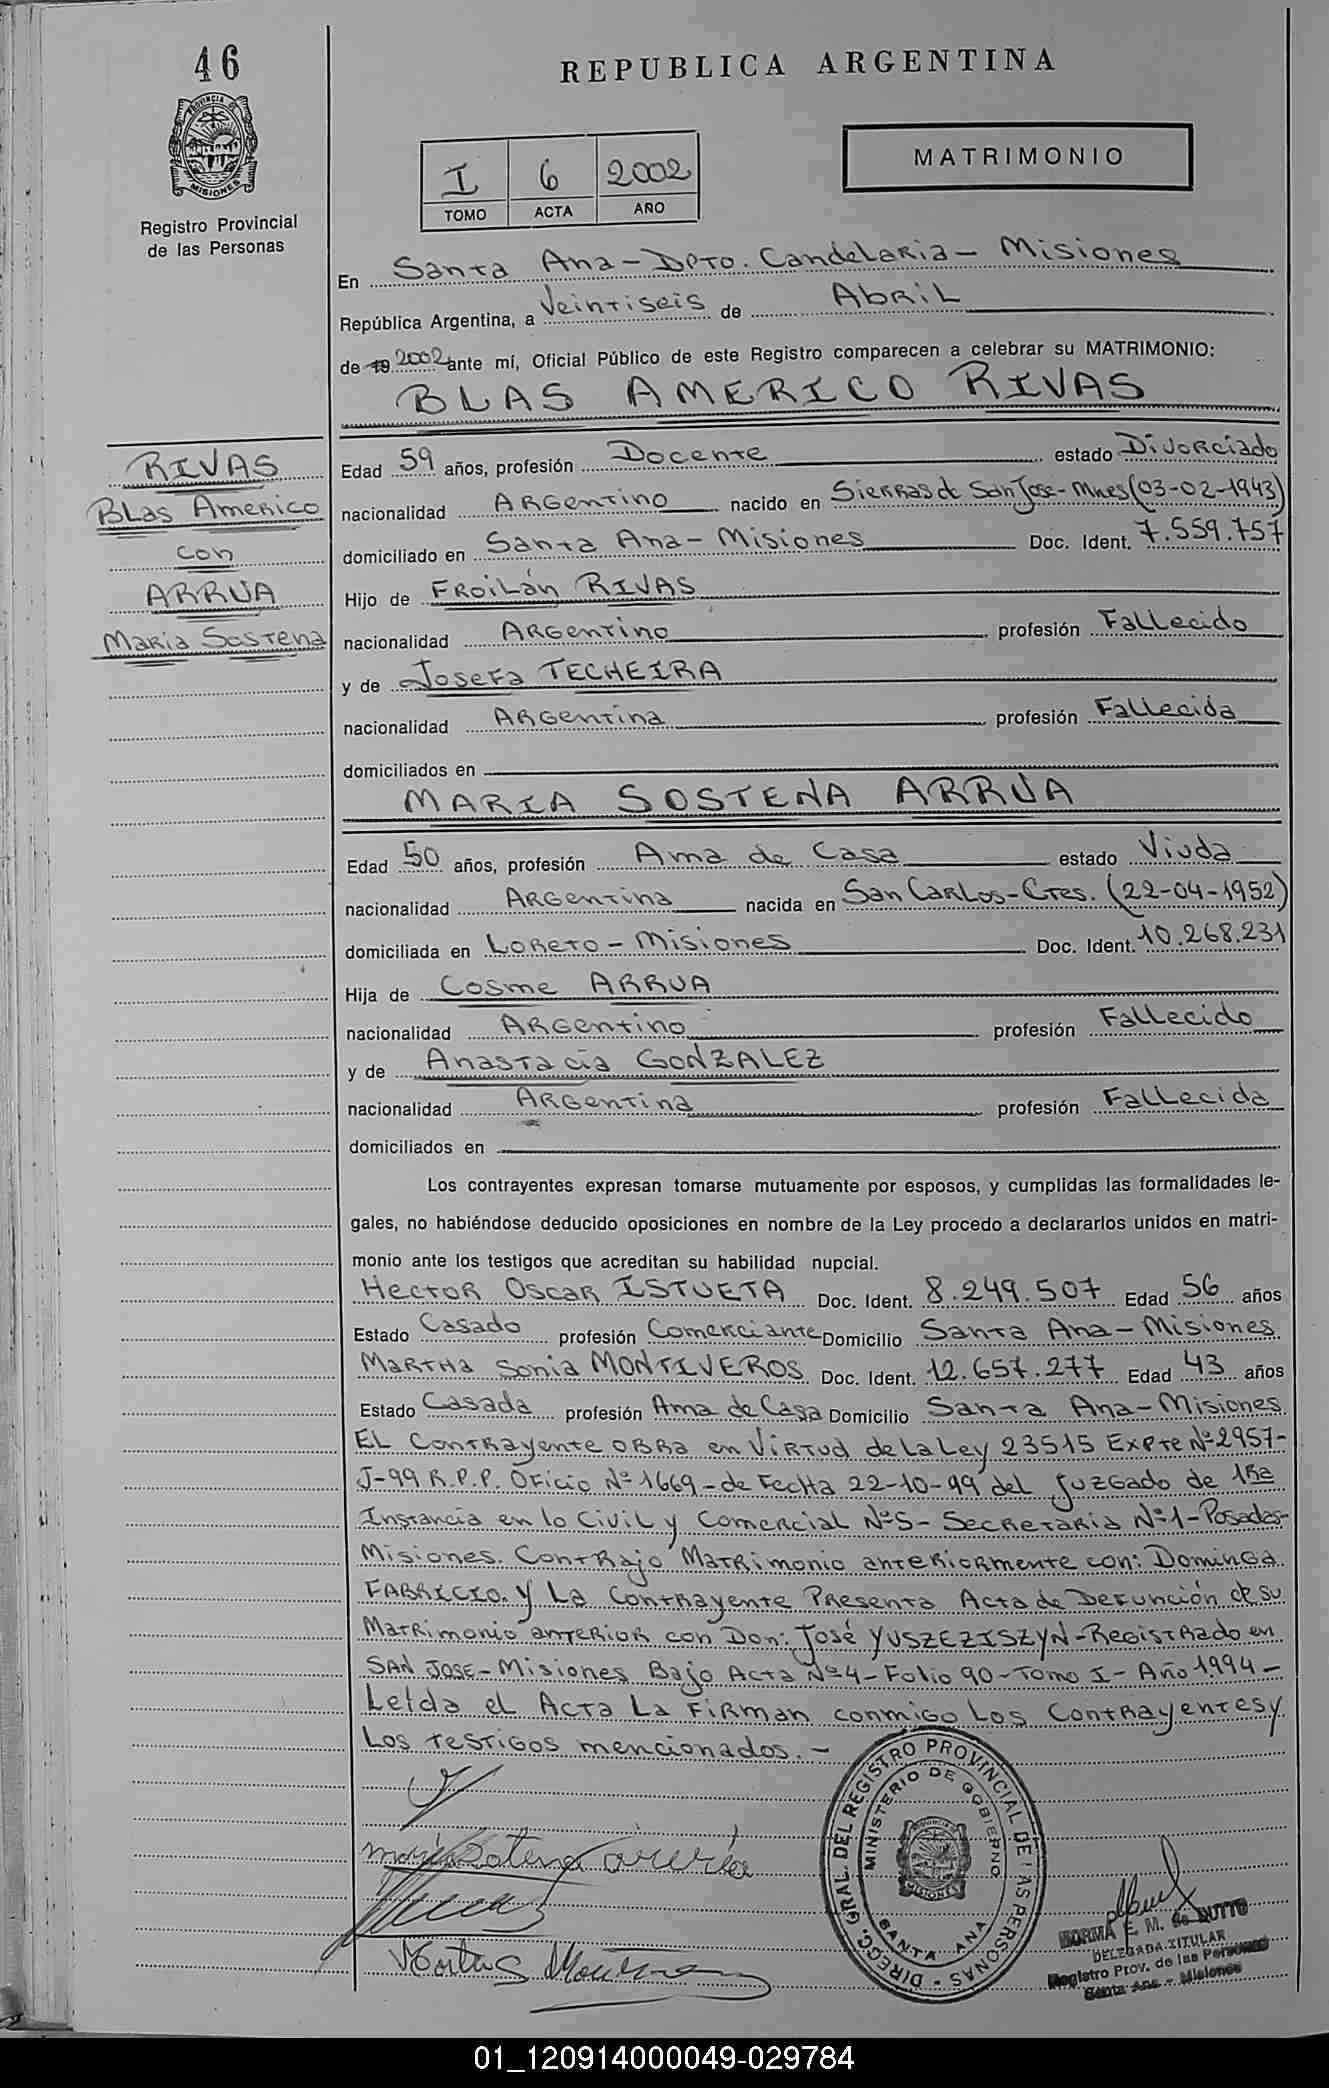 46
REPUBLICA ARGENTINA
I 6 2002
TOMO ACTA AÑO
MATRIMONIO
Registro Provincial
de las Personas
En Santa Ana - Dpto. Candelaria - Misiones
República Argentina, a Veintiseis de Abril
de 19 2002 ante mí, Oficial Público de este Registro comparecen a celebrar su MATRIMONIO:
BLAS AMERICO RIVAS
RIVAS
Blas Americo
con
ARRUA
Maria Sostena
Edad 59 años, profesión Docente estado Divorciado
nacionalidad Argentino nacido en Sierras de San Jose - Mnes (03-02-1943)
domiciliado en Santa Ana - Misiones Doc. Ident. 7.559.757
Hijo de Froilán RIVAS
nacionalidad Argentino profesión Fallecido
y de Josefa TECHEIRA
nacionalidad Argentina profesión Fallecida
domiciliados en
MARIA SOSTENA ARRUA
Edad 50 años, profesión Ama de Casa estado Viuda
nacionalidad Argentina nacida en San Carlos - Ctes. (22-04-1952)
domiciliada en Loreto - Misiones Doc. Ident. 10.268.231
Hija de Cosme ARRUA
nacionalidad Argentino profesión Fallecido
y de Anastacia GONZALEZ
nacionalidad Argentina profesión Fallecida
domiciliados en
Los contrayentes expresan tomarse mutuamente por esposos, y cumplidas las formalidades le-
gales, no habiéndose deducido oposiciones en nombre de la Ley procedo a declararlos unidos en matri-
monio ante los testigos que acreditan su habilidad nupcial.
Hector Oscar ISTUETA Doc. Ident. 8.249.507 Edad 56 años
Estado Casado profesión Comerciante Domicilio Santa Ana - Misiones
Martha Sonia MONTIVEROS Doc. Ident. 12.657.277 Edad 43 años
Estado Casada profesión Ama de Casa Domicilio Santa Ana - Misiones
El Contrayente obra en Virtud de la Ley 23515 Expte Nº 2957-
J-99 R.P.P. Oficio Nº 1669 - de Fecha 22-10-99 del Juzgado de 1ra
Instancia en lo Civil y Comercial Nº 5 - Secretaria Nº 1 - Posadas-
Misiones. Contrajo Matrimonio anteriormente con: Dominga
FABRICIO. y La Contrayente Presenta Acta de Defunción de su
Matrimonio anterior con Don: José YUSZEZISZYN - Registrado en
SAN JOSE - Misiones Bajo Acta Nº 4 - Folio 90 - Tomo I - Año 1994 -
Leida el Acta La Firman conmigo Los Contrayentes y
Los testigos mencionados. -
DIRECC. GRAL. DEL REGISTRO PROVINCIAL DE LAS PERSONAS - SANTA ANA
MINISTERIO DE GOBIERNO
NORMA E. M. de DUTTO
DELEGADA TITULAR
Registro Prov. de las Personas
Santa Ana - Misiones
01_120914000049-029784